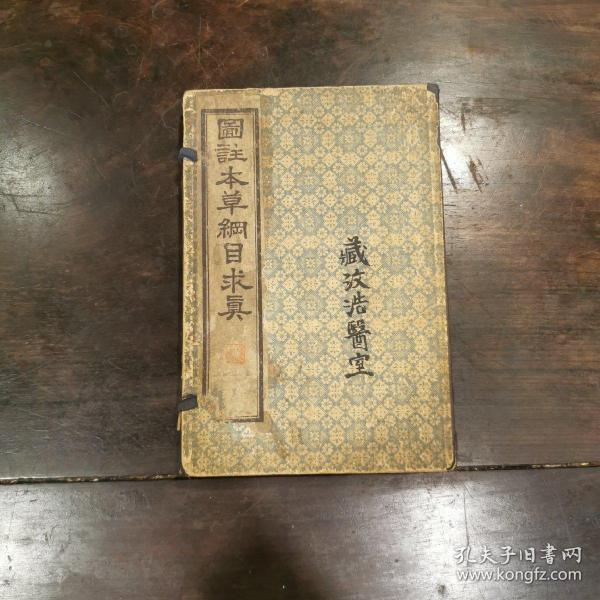 圖註本草綱目求真
藏
浩醫室
孔夫子旧书网
www.kongfz.com